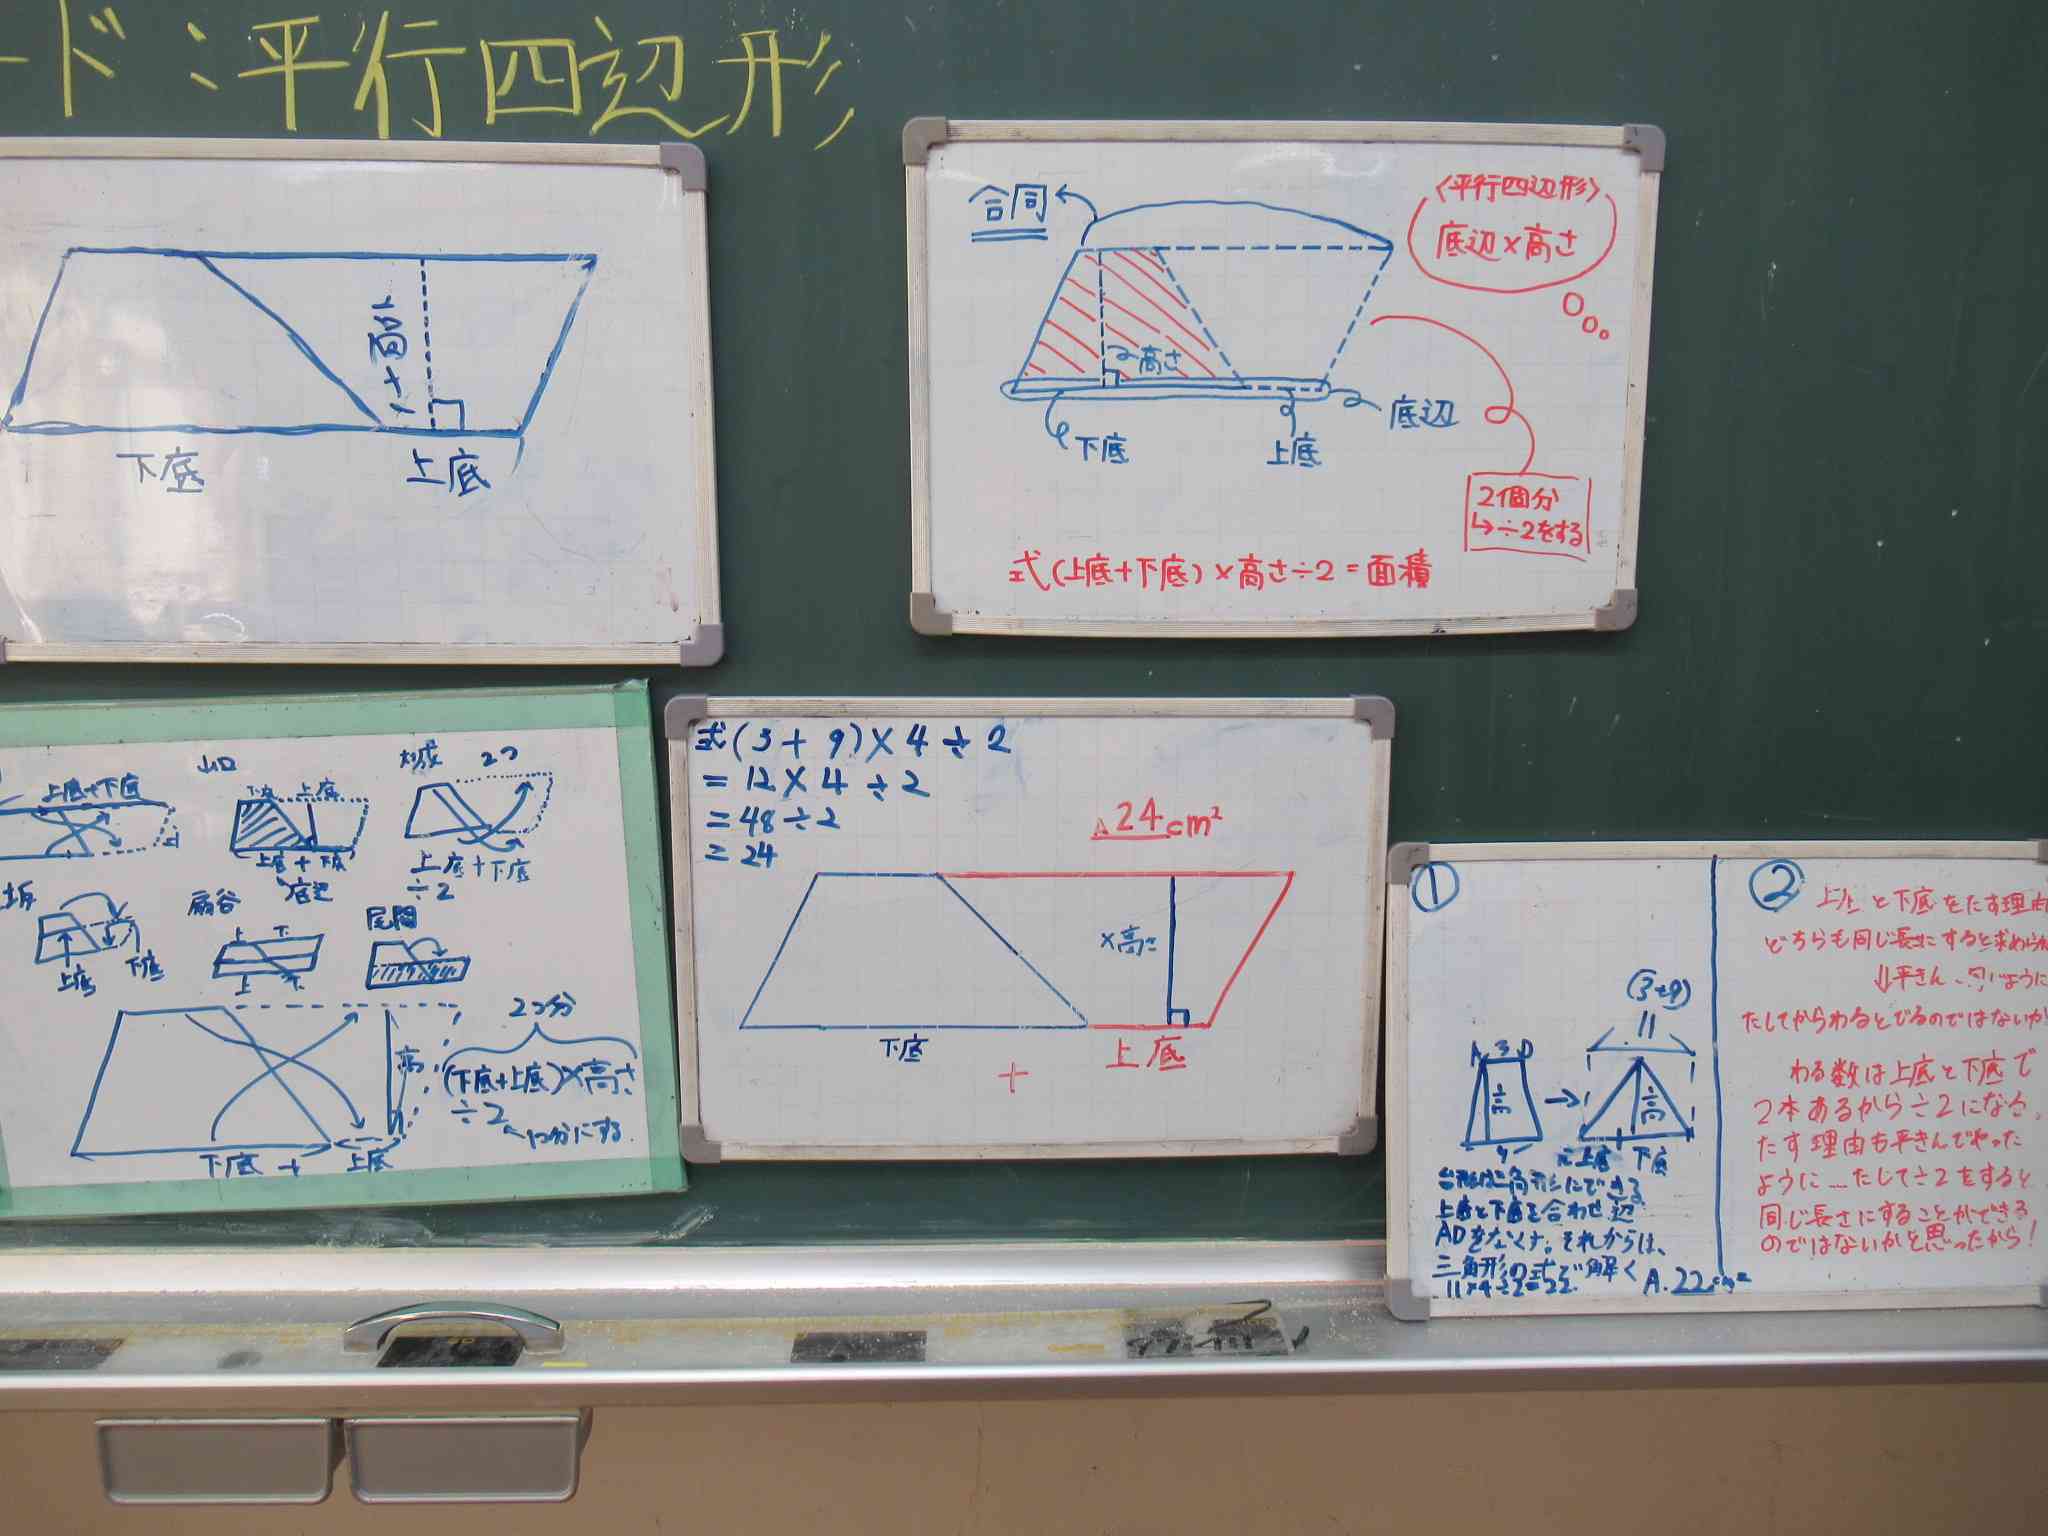 ード：平行四辺形
×高さ
下底
上底
合同
〈平行四辺形〉
底辺×高さ
高さ
下底
上底
底辺
2個分
↳÷2をする
式(上底+下底)×高さ÷2=面積
上底+下底
山口
下底 上底
上底+下底
底辺
2つ
上底+下底
÷2
上底
下底
扇谷
上 下
上 下
尾関
2つ分
高
(下底+上底)×高さ
÷2
1つ分にする.
下底+上底
式(3+9)×4÷2
=12×4÷2
=48÷2
=24
A24cm²
×高さ
下底
+
上底
①
A 3 D
高
(3+9)
11
高
上底 下底
台形は三角形にできる
上底と下底を合わせ辺
ADをなくす。それからは、
三角形の式で解く
11×4÷2=22
A.22cm²
②
上底と下底をたす理由
どちらも同じ長さにすると求められ
たしてからわるとでるのではないか
わる数は上底と下底で
2本あるから÷2になる。
たす理由も平きんでやった
ように…たして÷2をすると
同じ長さにすることができる
のではないかと思ったから!